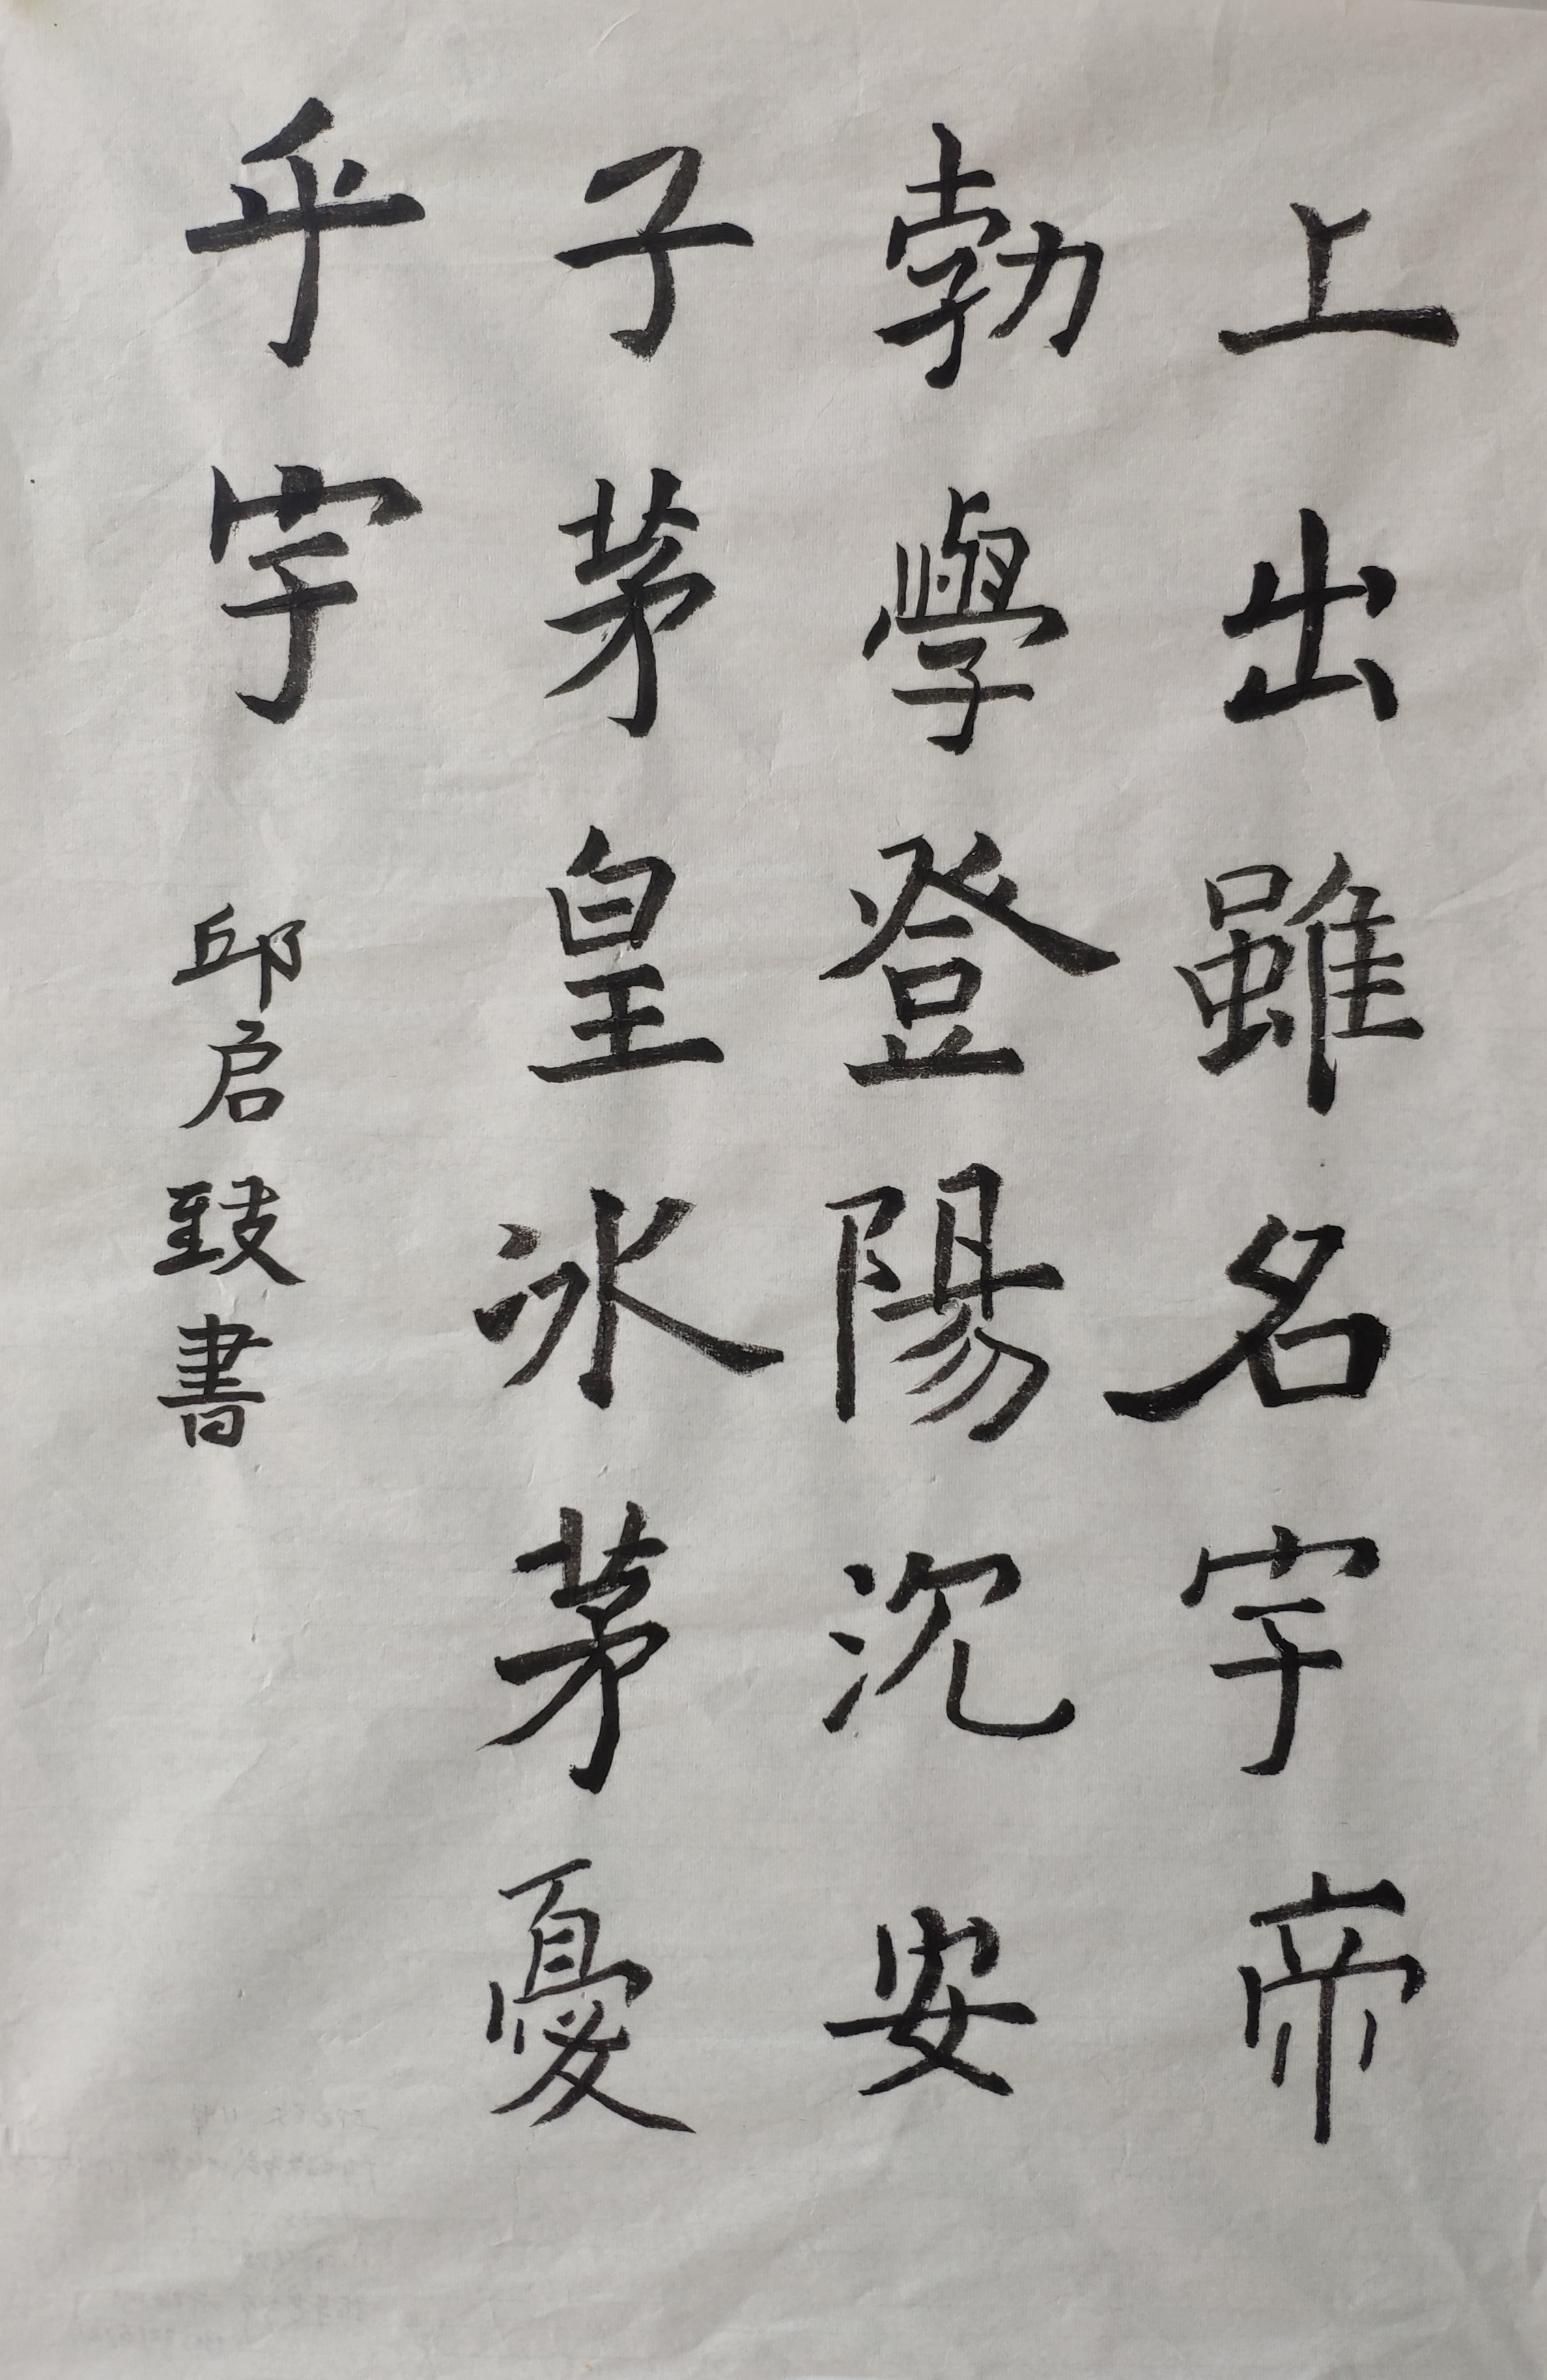 上出雖名宇帝
勃學登陽沉安
子茅皇冰茅憂
乎宇
邱启致書